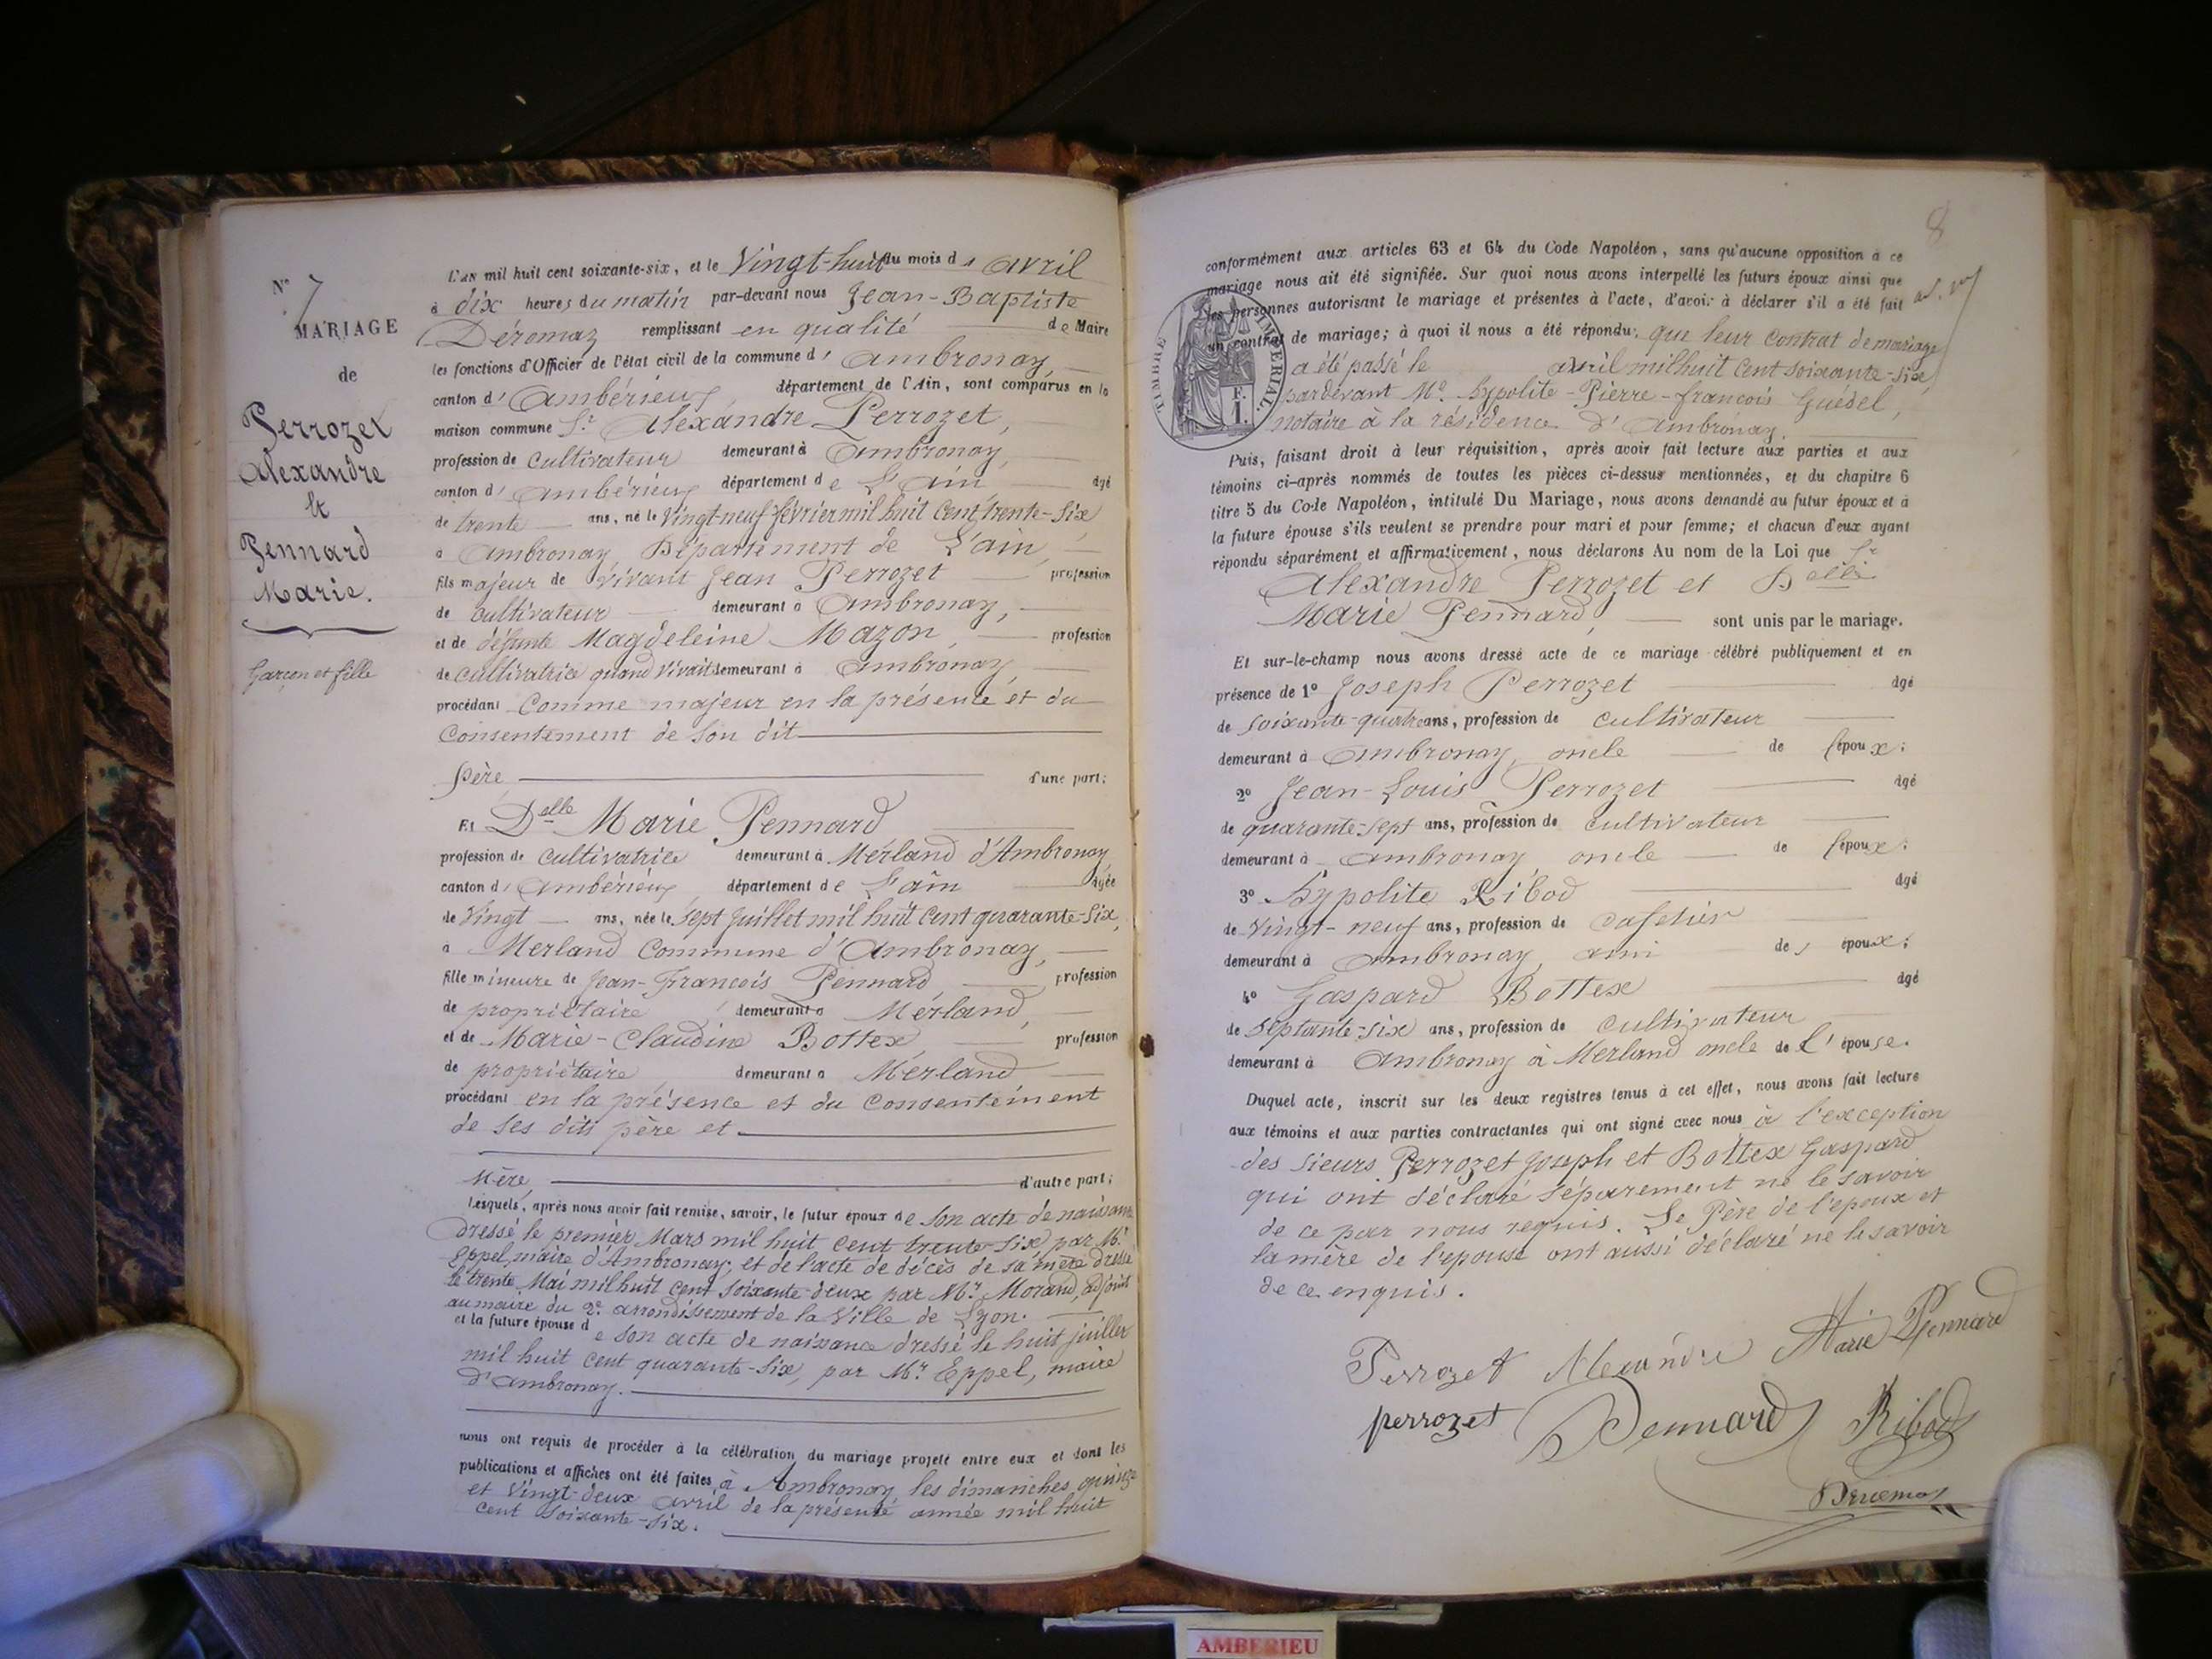 N° 7
MARIAGE
de
Perrozet
Alexandre
&
Pennard
Marie.
Garçon et fille
L'an mil huit cent soixante-six, et le Vingt-huit du mois d' avril
à dix heures du matin par-devant nous Jean-Baptiste
Déromaz remplissant en qualité de Maire
les fonctions d'Officier de l'état civil de la commune d' Ambronay,
canton d' Ambérieux, département de l'Ain, sont comparus en la
maison commune Sr Alexandre Perrozet,
profession de cultivateur demeurant à Ambronay,
canton d' Ambérieux département de L'ain âgé
de trente ans, né le Vingt-neuf février mil huit Cent trente-Six,
à Ambronay, Département de L'ain,
fils majeur de vivant Jean Perrozet profession
de cultivateur demeurant à Ambronay,
et de défunte Magdeleine Mazon, profession
de cultivatrice quand Vivait demeurant à Ambronay,
procédant Comme majeur en la présence et du
Consentement de Son dit
Père d'une part;
Et Delle Marie Pennard
profession de cultivatrice demeurant à Mérland d'Ambronay,
canton d' Ambérieux département de L'ain âgée
de Vingt ans, née le Sept Juillet mil huit Cent quarante-Six,
à Merland Commune d'Ambronay,
fille mineure de Jean-François Pennard, profession
de propriétaire demeurant à Mérland,
et de Marie-Claudine Bottex, profession
de propriétaire, demeurant à Mérland
procédant en la présence et du Consentement
de Ses dits père et
Mère d'autre part;
Lesquels, après nous avoir fait remise, savoir, le futur époux de Son acte de naissance
Dressé le premier Mars mil huit cent trente-Six, par Mr
Eppel, maire d'Ambronay; et de l'acte de décès de sa mère dressé
le trente Mai mil huit cent Soixante-deux par Mr Morand, adjoint
au maire du 2e arrondissement de la Ville de Lyon.
et la future épouse de Son acte de naissance dressé le huit juillet
mil huit cent quarante-Six, par Mr Eppel, maire
d'Ambronay.
nous ont requis de procéder à la célébration du mariage projeté entre eux et dont les
publications et affiches ont été faites à Ambronay les dimanches quinze
et Vingt-deux avril de la présente année mil huit
cent Soixante-Six.
8
conformément aux articles 63 et 64 du Code Napoléon, sans qu'aucune opposition à ce
mariage nous ait été signifiée. Sur quoi nous avons interpellé les futurs époux ainsi que
les personnes autorisant le mariage et présentes à l'acte, d'avoir à déclarer s'il a été fait
un contrat de mariage; à quoi il nous a été répondu: que leur Contrat de mariage
TIMBRE IMPÉRIAL.
a été passé le avril mil huit Cent Soixante-Six,
pardevant Me. hypolite-Pierre-francois Guédel,
notaire à la résidence d'Ambronay.
Puis, faisant droit à leur réquisition, après avoir fait lecture aux parties et aux
témoins ci-après nommés de toutes les pièces ci-dessus mentionnées, et du chapitre 6
titre 5 du Code Napoléon, intitulé Du Mariage, nous avons demandé au futur époux et à
la future épouse s'ils veulent se prendre pour mari et pour femme; et chacun d'eux ayant
répondu séparément et affirmativement, nous déclarons Au nom de la Loi que Sr
Alexandre Perrozet et Delle
Marie Pennard, sont unis par le mariage.
Et sur-le-champ nous avons dressé acte de ce mariage célébré publiquement et en
présence de 1° Joseph Perrozet âgé
de soixante-quatre ans, profession de cultivateur
demeurant à Ambronay, oncle de l'époux;
2° Jean-Louis Perrozet âgé
de quarante-sept ans, profession de cultivateur
demeurant à Ambronay oncle de l'époux;
3° hypolite Ribod âgé
de Vingt-neuf ans, profession de cafetier
demeurant à Ambronay, ami des époux;
4° Gaspard Bottex âgé
de Septante-Six ans, profession de cultivateur
demeurant à Ambronay à Merland oncle de l'épouse.
Duquel acte, inscrit sur les deux registres tenus à cet effet, nous avons fait lecture
aux témoins et aux parties contractantes qui ont signé avec nous à l'exception
des Sieurs Perrozet Joseph et Bottex Gaspard
qui ont déclaré séparement ne le savoir
de ce par nous requis. Le Père de l'epoux et
la mère de l'épouse ont aussi déclaré ne le savoir
de ce enquis.
Perrozet Alexandre Marie Pennard
perrozet Pennard Ribod
Déromaz
AMBERIEU